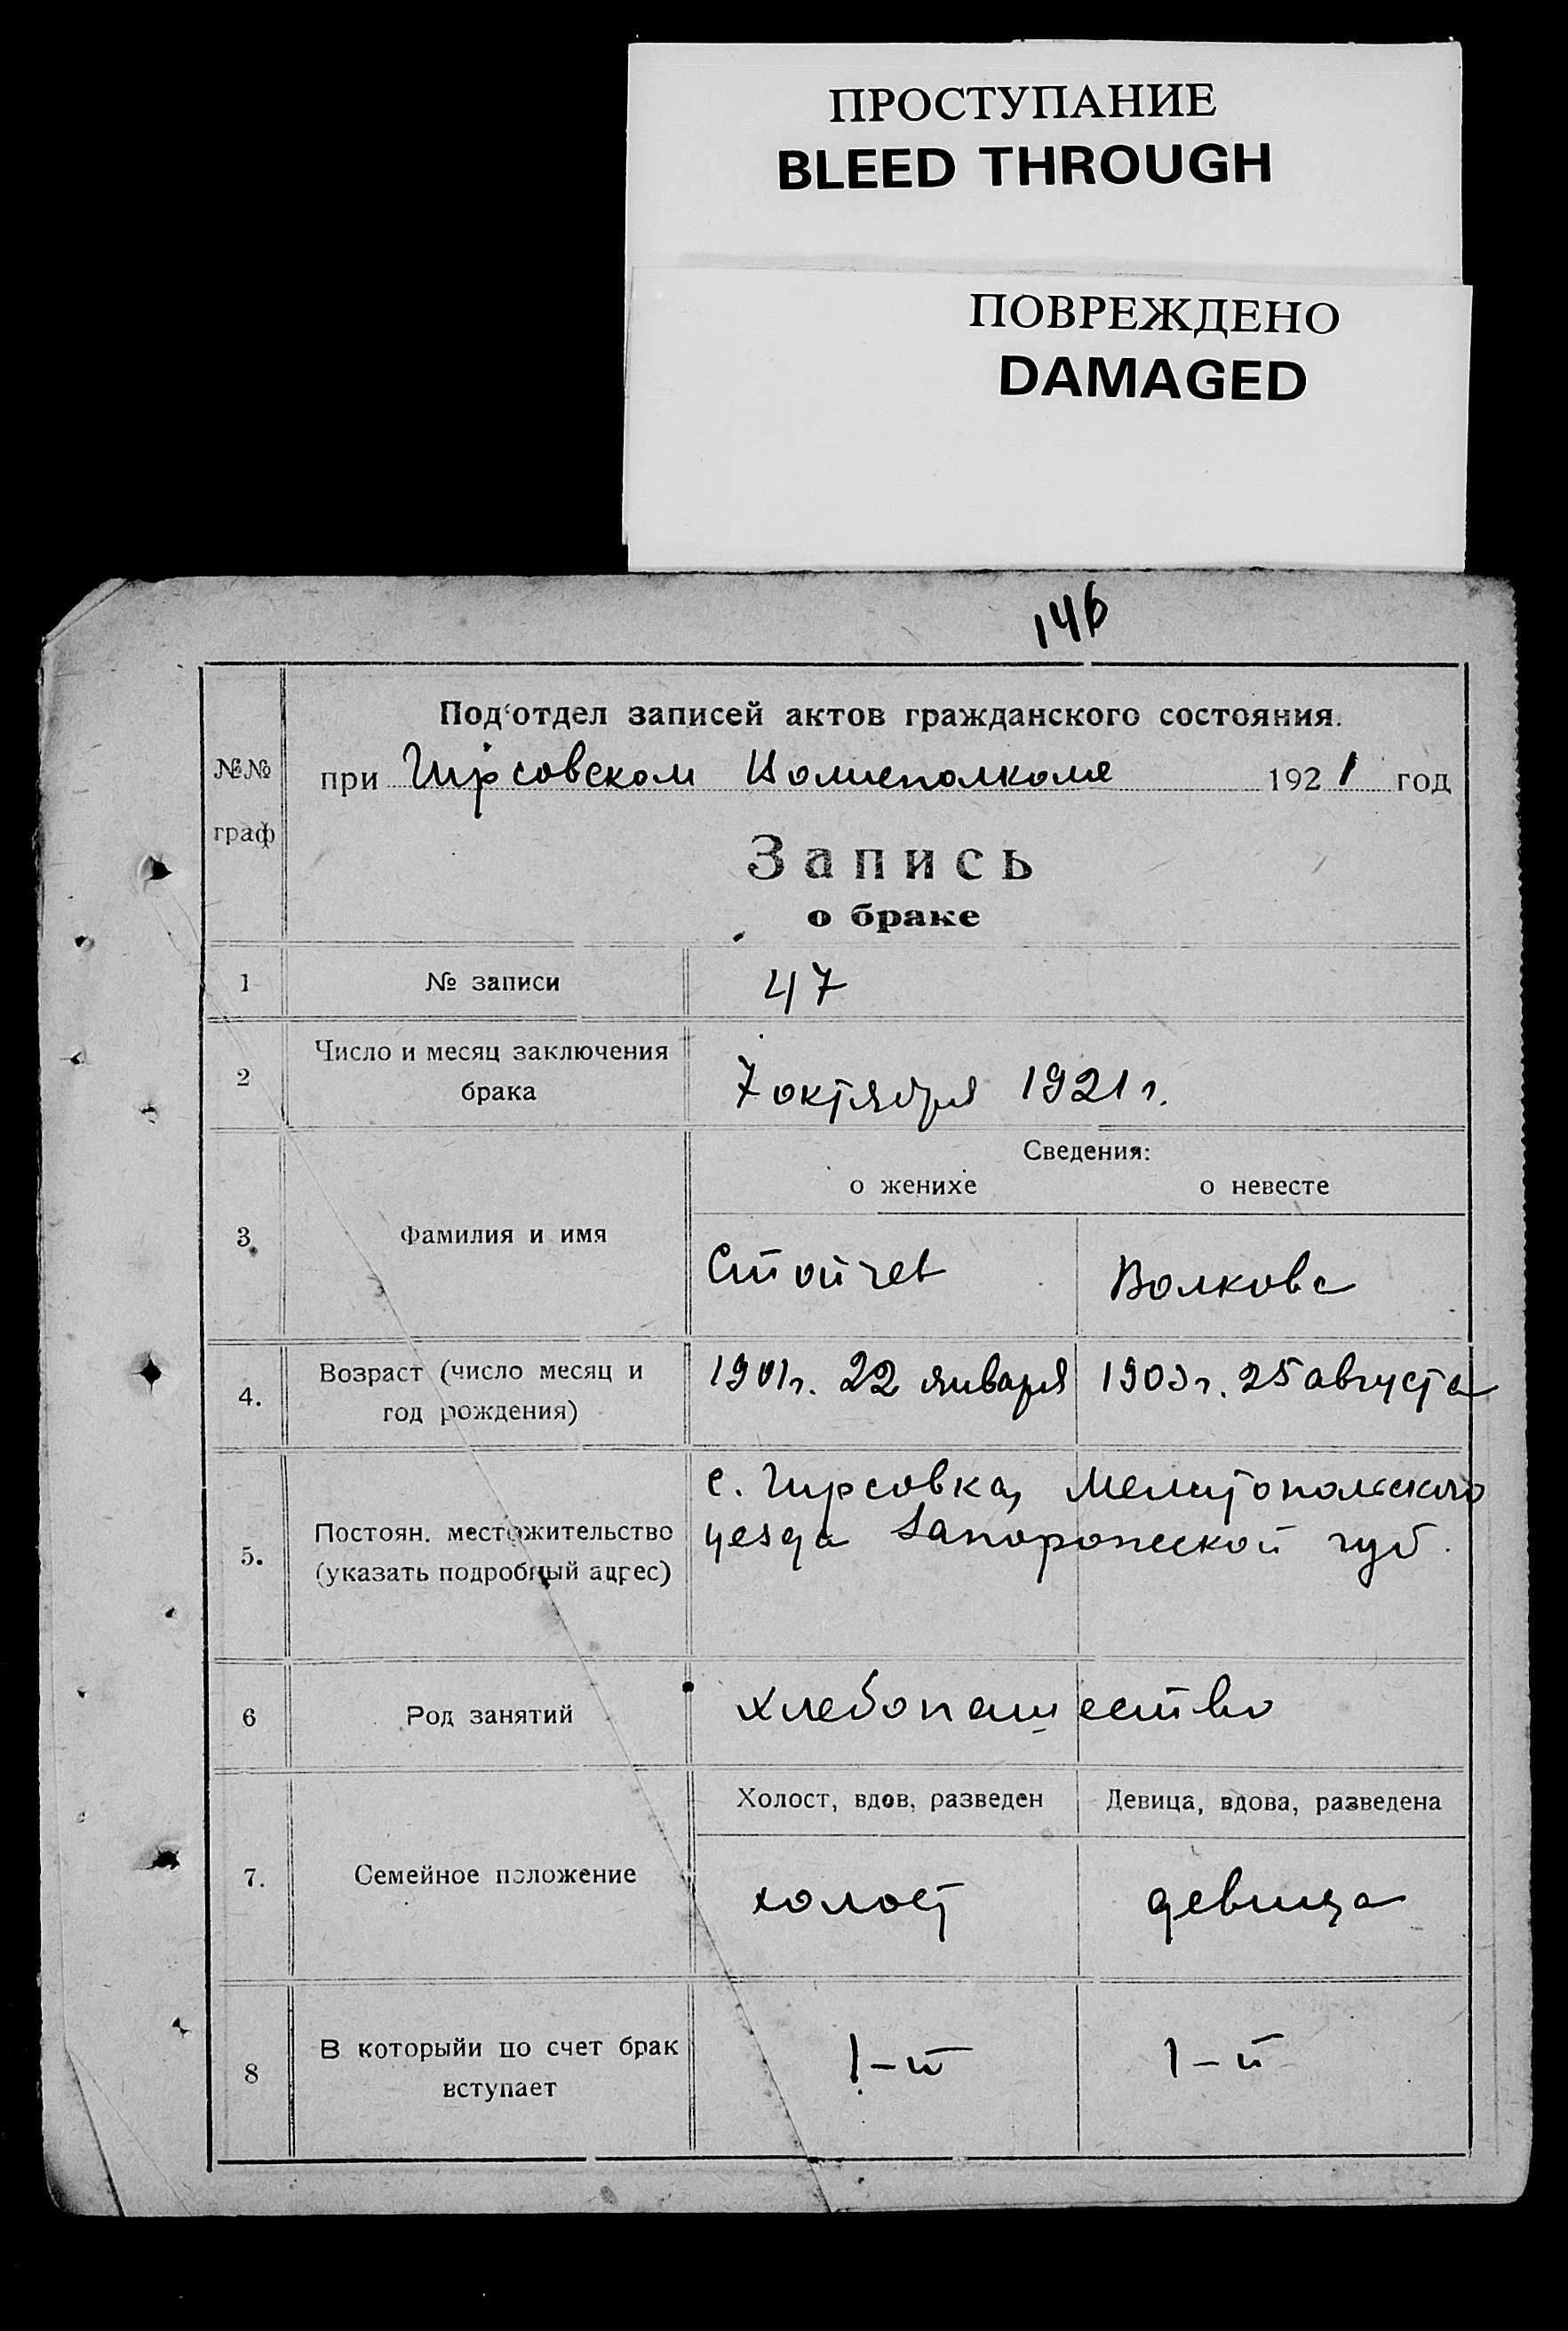 ПРОСТУПАНИЕ
BLEED THROUGH
ПОВРЕЖДЕНО
DAMAGED
146
Под‘отдел записей актов гражданского состояния.
№№ граф
при Гирсовском Волисполкоме 1921 год
Запись
о браке
1 № записи 47
2 Число и месяц заключения брака 7 октября 1921 г.
Сведения:
о женихе о невесте
3. Фамилия и имя Стойчев Волкова
4. Возраст (число месяц и год рождения) 1901 г. 22 января 1903 г. 25 августа
5. Постоян. местожительство (указать подробный адрес) с. Гирсовка, Мелитопольского
уезда Запорожской губ.
6 Род занятий хлебопашество
Холост, вдов, разведен Девица, вдова, разведена
7. Семейное положение холост девица
8 В которыйи по счет брак вступает 1-й 1-й